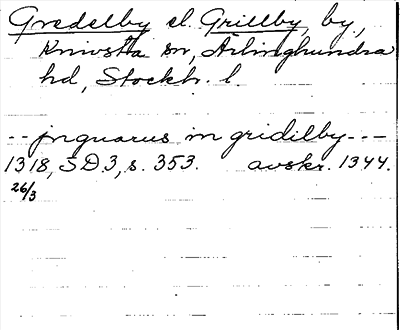 Gredelby el. Grillby, by,
Knivsta sn, Ärlinghundra
hd, Stockh. l.
-- jnguarus in gridilby ---
1318, SD3, s. 353. avskr. 1344.
26/3